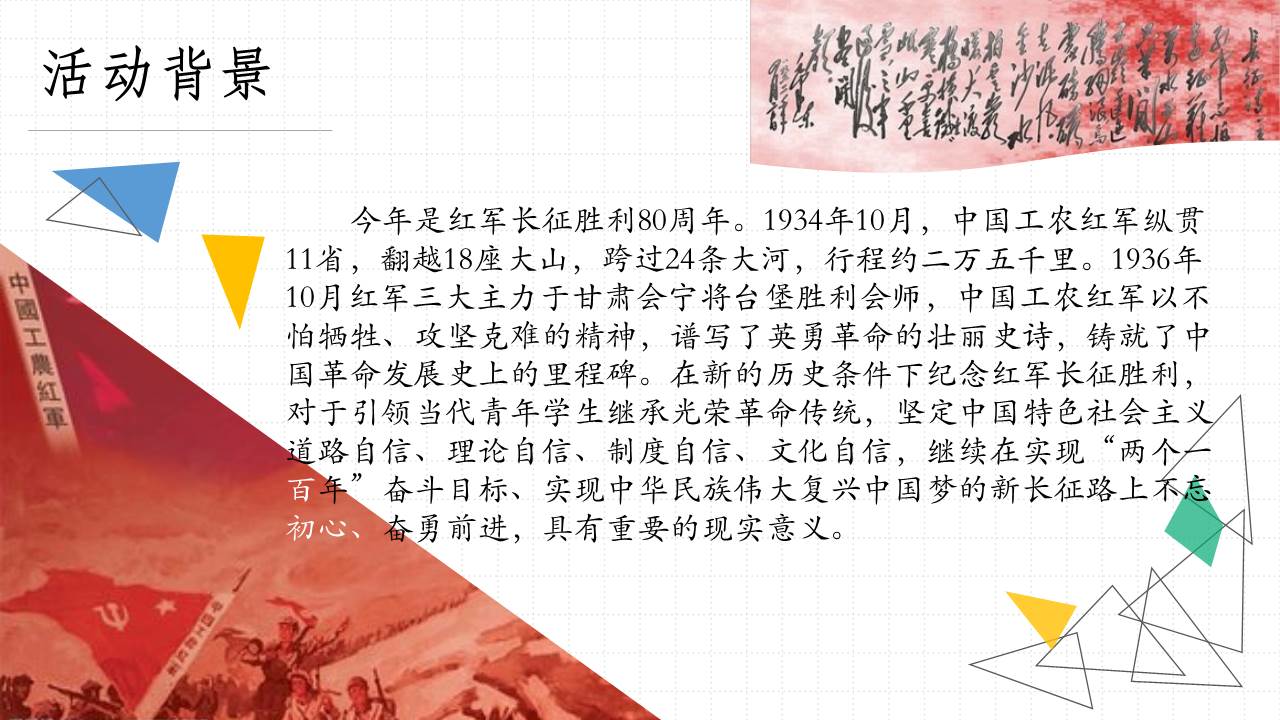 活动背景
今年是红军长征胜利80周年。1934年10月，中国工农红军纵贯
11省，翻越18座大山，跨过24条大河，行程约二万五千里。1936年
10月红军三大主力于甘肃会宁将台堡胜利会师，中国工农红军以不
怕牺牲、攻坚克难的精神，谱写了英勇革命的壮丽史诗，铸就了中
国革命发展史上的里程碑。在新的历史条件下纪念红军长征胜利，
对于引领当代青年学生继承光荣革命传统，坚定中国特色社会主义
道路自信、理论自信、制度自信、文化自信，继续在实现“两个一
百年”奋斗目标、实现中华民族伟大复兴中国梦的新长征路上不忘
初心、奋勇前进，具有重要的现实意义。
中國工農紅軍